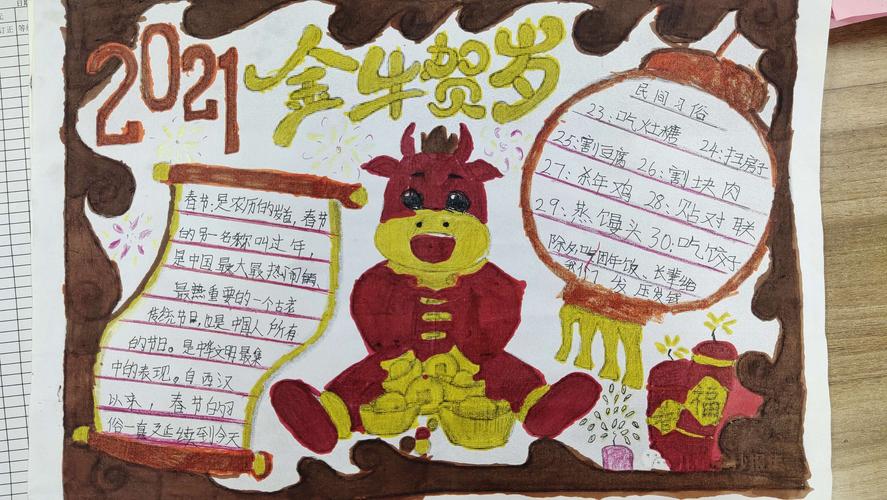 2021 金牛贺岁
春节:是农历的岁首,春节
的另一名称叫过年,
是中国最大最热闹
最重要的一个古老
传统节日,也是中国人所有
的节日。是中华文明最集
中的表现。自西汉
以来,春节的习
俗一直延续到今天
民间习俗
23:吃灶糖 24:扫房子
25:割豆腐 26:割块肉
27:杀年鸡 28:贴对联
29:蒸馒头 30:吃饺子
除夕吃团年饭、长辈给
我们发压岁钱
福